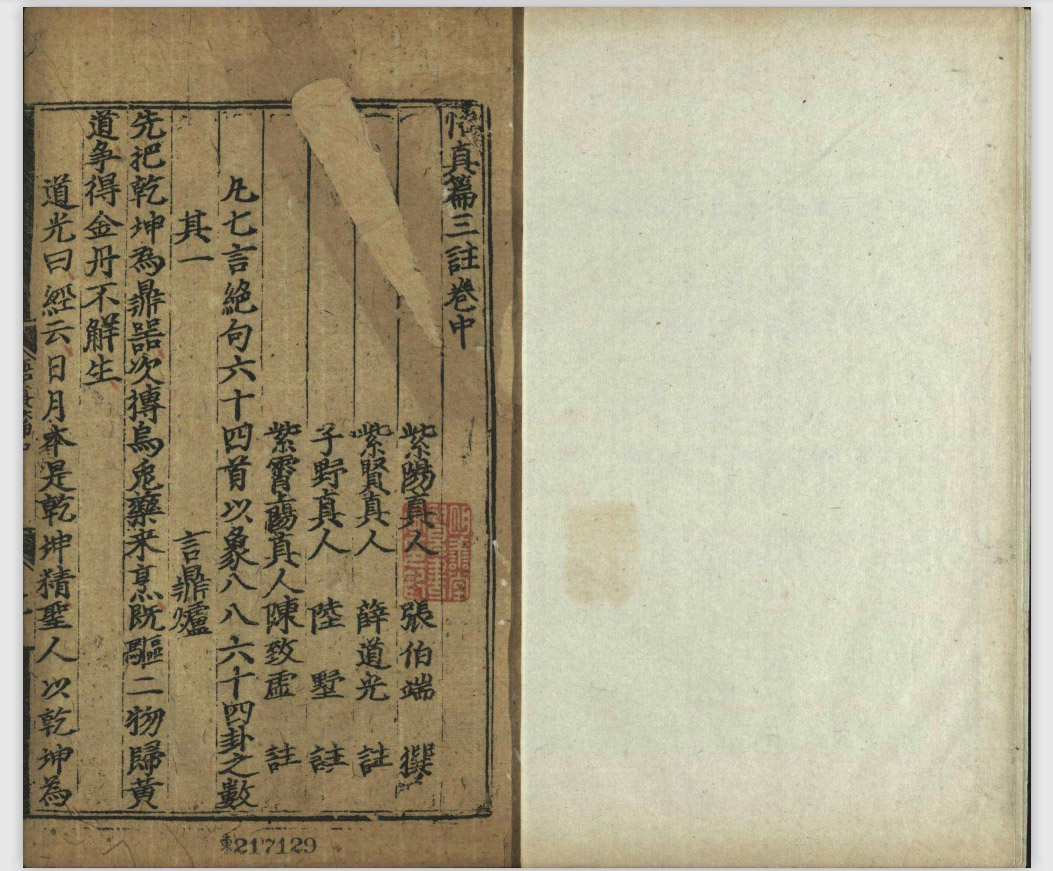 悟真篇三註卷中
紫陽真人 張伯端 撰
紫賢真人 薛道光 註
子野真人 陸墅 註
紫霄上陽真人陳致虛 註
凡七言絶句六十四首以象八八六十四卦之數
其一 言鼎爐
先把乾坤為鼎噐次摶烏兎藥来烹既驅二物歸黄
道争得金丹不觧生
道光曰經云日月夲是乾坤精聖人以乾坤為
東217129